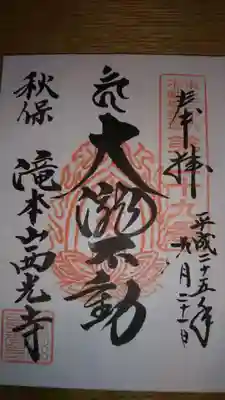 奉拝
平成二十五年
九月二十一日
大瀧不動
秋保
滝本山西光寺